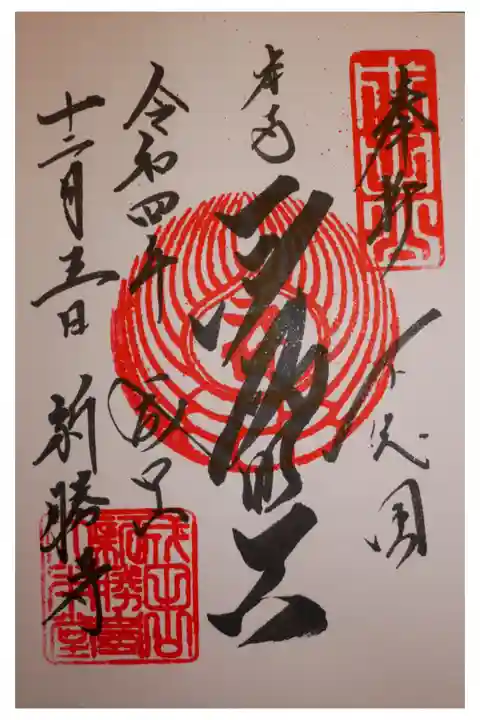 奉拝
下総国
本尊
不動明王
令和四年
成田山
十二月三日
新勝寺
成田山
新勝寺